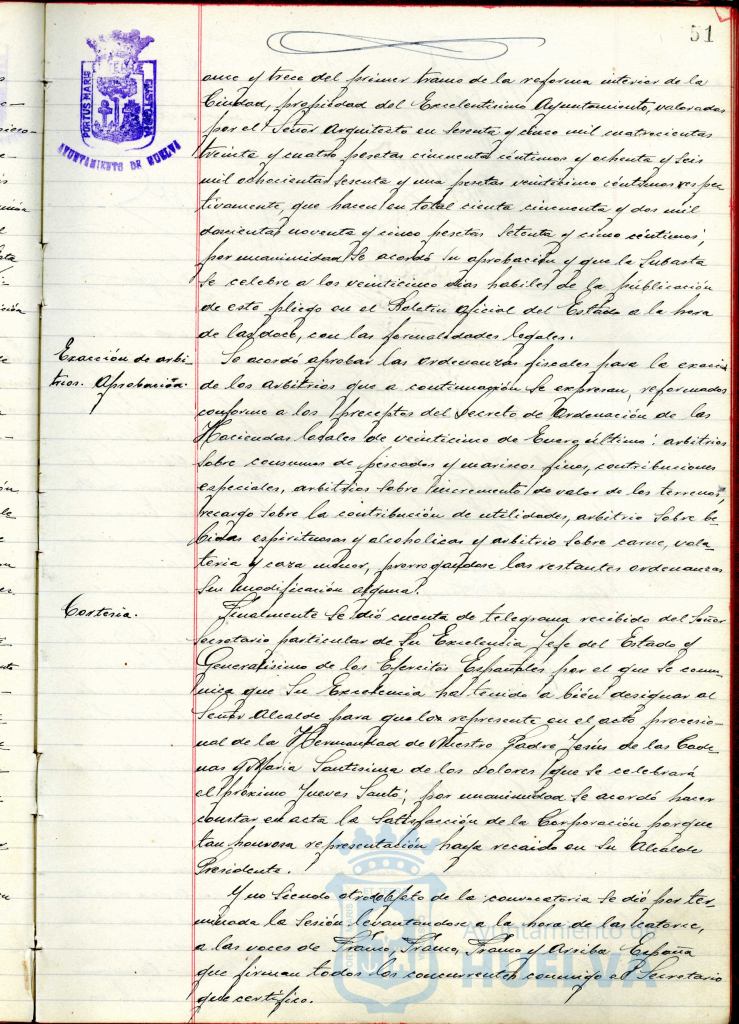 51
PORTUS MARIS
ET TERRAE
CUSTODIA
AYUNTAMIENTO DE HUELVA
once y trece del primer tramo de la reforma interior de la
Ciudad, propiedad del Excelentísimo Ayuntamiento, valorados
por el Señor Arquitecto en sesenta y cinco mil cuatrocientas
treinta y cuatro pesetas cincuenta céntimos y ochenta y seis
mil ochocientas sesenta y una pesetas veinticinco céntimos respec
tivamente, que hacen en total ciento cincuenta y dos mil
doscientas noventa y cinco pesetas setenta y cinco céntimos;
por unanimidad se acordó su aprobación y que la subasta
se celebre a los veinticinco días hábiles de la publicación
de este pliego en el Boletín Oficial del Estado a la hora
de las doce, con las formalidades legales.
Exacción de arbi
trios. Aprobación.
Se acordó aprobar las ordenanzas fiscales para la exacción
de los arbitrios que a continuación se expresan, reformados
conforme a los preceptos del Decreto de Ordenación de las
Haciendas locales de veinticinco de Enero último: arbitrios
sobre consumos de pescados y mariscos finos, contribuciones
especiales, arbitrios sobre incremento de valor de los terrenos,
recargo sobre la contribución de utilidades, arbitrio sobre be
bidas espirituosas y alcohólicas y arbitrio sobre carne, vola-
tería y caza menor, prorrogándose las restantes ordenanzas
sin modificación alguna.
Cortesía.
Finalmente se dió cuenta de telegrama recibido del Señor
Secretario particular de Su Excelencia Jefe del Estado y
Generalísimo de los Ejércitos Españoles por el que se comu-
nica que Su Excelencia ha tenido a bién designar al
Señor Alcalde para que lo represente en el acto procesio-
nal de la Hermandad de Nuestro Padre Jesús de las Cade-
nas y María Santísima de los Dolores que se celebrará
el próximo Jueves Santo; por unanimidad se acordó hacer
constar en acta la satisfacción de la Corporación porque
tan honrosa representación haya recaido en su Alcalde
Presidente.
Y no siendo otro objeto de la convocatoria se dió por ter-
minada la sesión levantándose a la hora de las catorce,
a las voces de Franco, Franco, Franco y Arriba España
que firman todos los concurrentes conmigo el Secretario
que certifico.
Ayuntamiento de
HUELVA